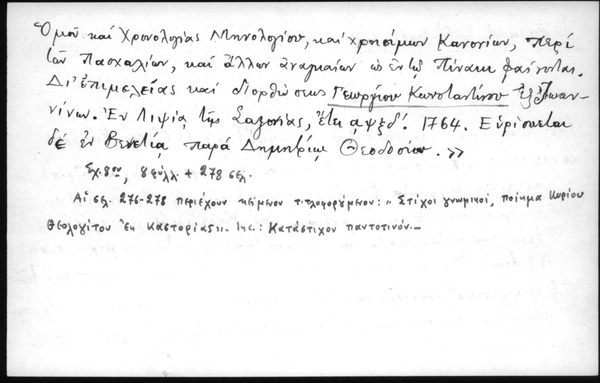 Ὁμοῦ καὶ Χρονολογίας Μηνολογίου, καὶ χρησίμων Κανονίων, περὶ
τῶν Πασχαλίων, καὶ ἄλλων ἀναγκαίων ὡς ἐν τῷ Πίνακι φαίνονται.
Δι' ἐπιμελείας καὶ διορθώσεως Γεωργίου Κωνσταντίνου ἐξ Ἰωαν-
νίνων. Ἐν Λιψίᾳ τῆς Σαξονίας, ἔτει αψξδ'. 1764. Εὑρίσκεται
δὲ ἐν Βενετίᾳ παρὰ Δημητρίῳ Θεοδοσίου. >>
Σχ. 8ον, 8 φύλλ. + 278 σελ.
Αἱ σελ. 276-278 περιέχουν κείμενον τιτλοφορούμενον: „ Στίχοι γνωμικοί, ποίημα Κυρίου
Θεολογίτου ἐκ Καστορίας". Inc.: Κατάστιχον παντοτινόν.—